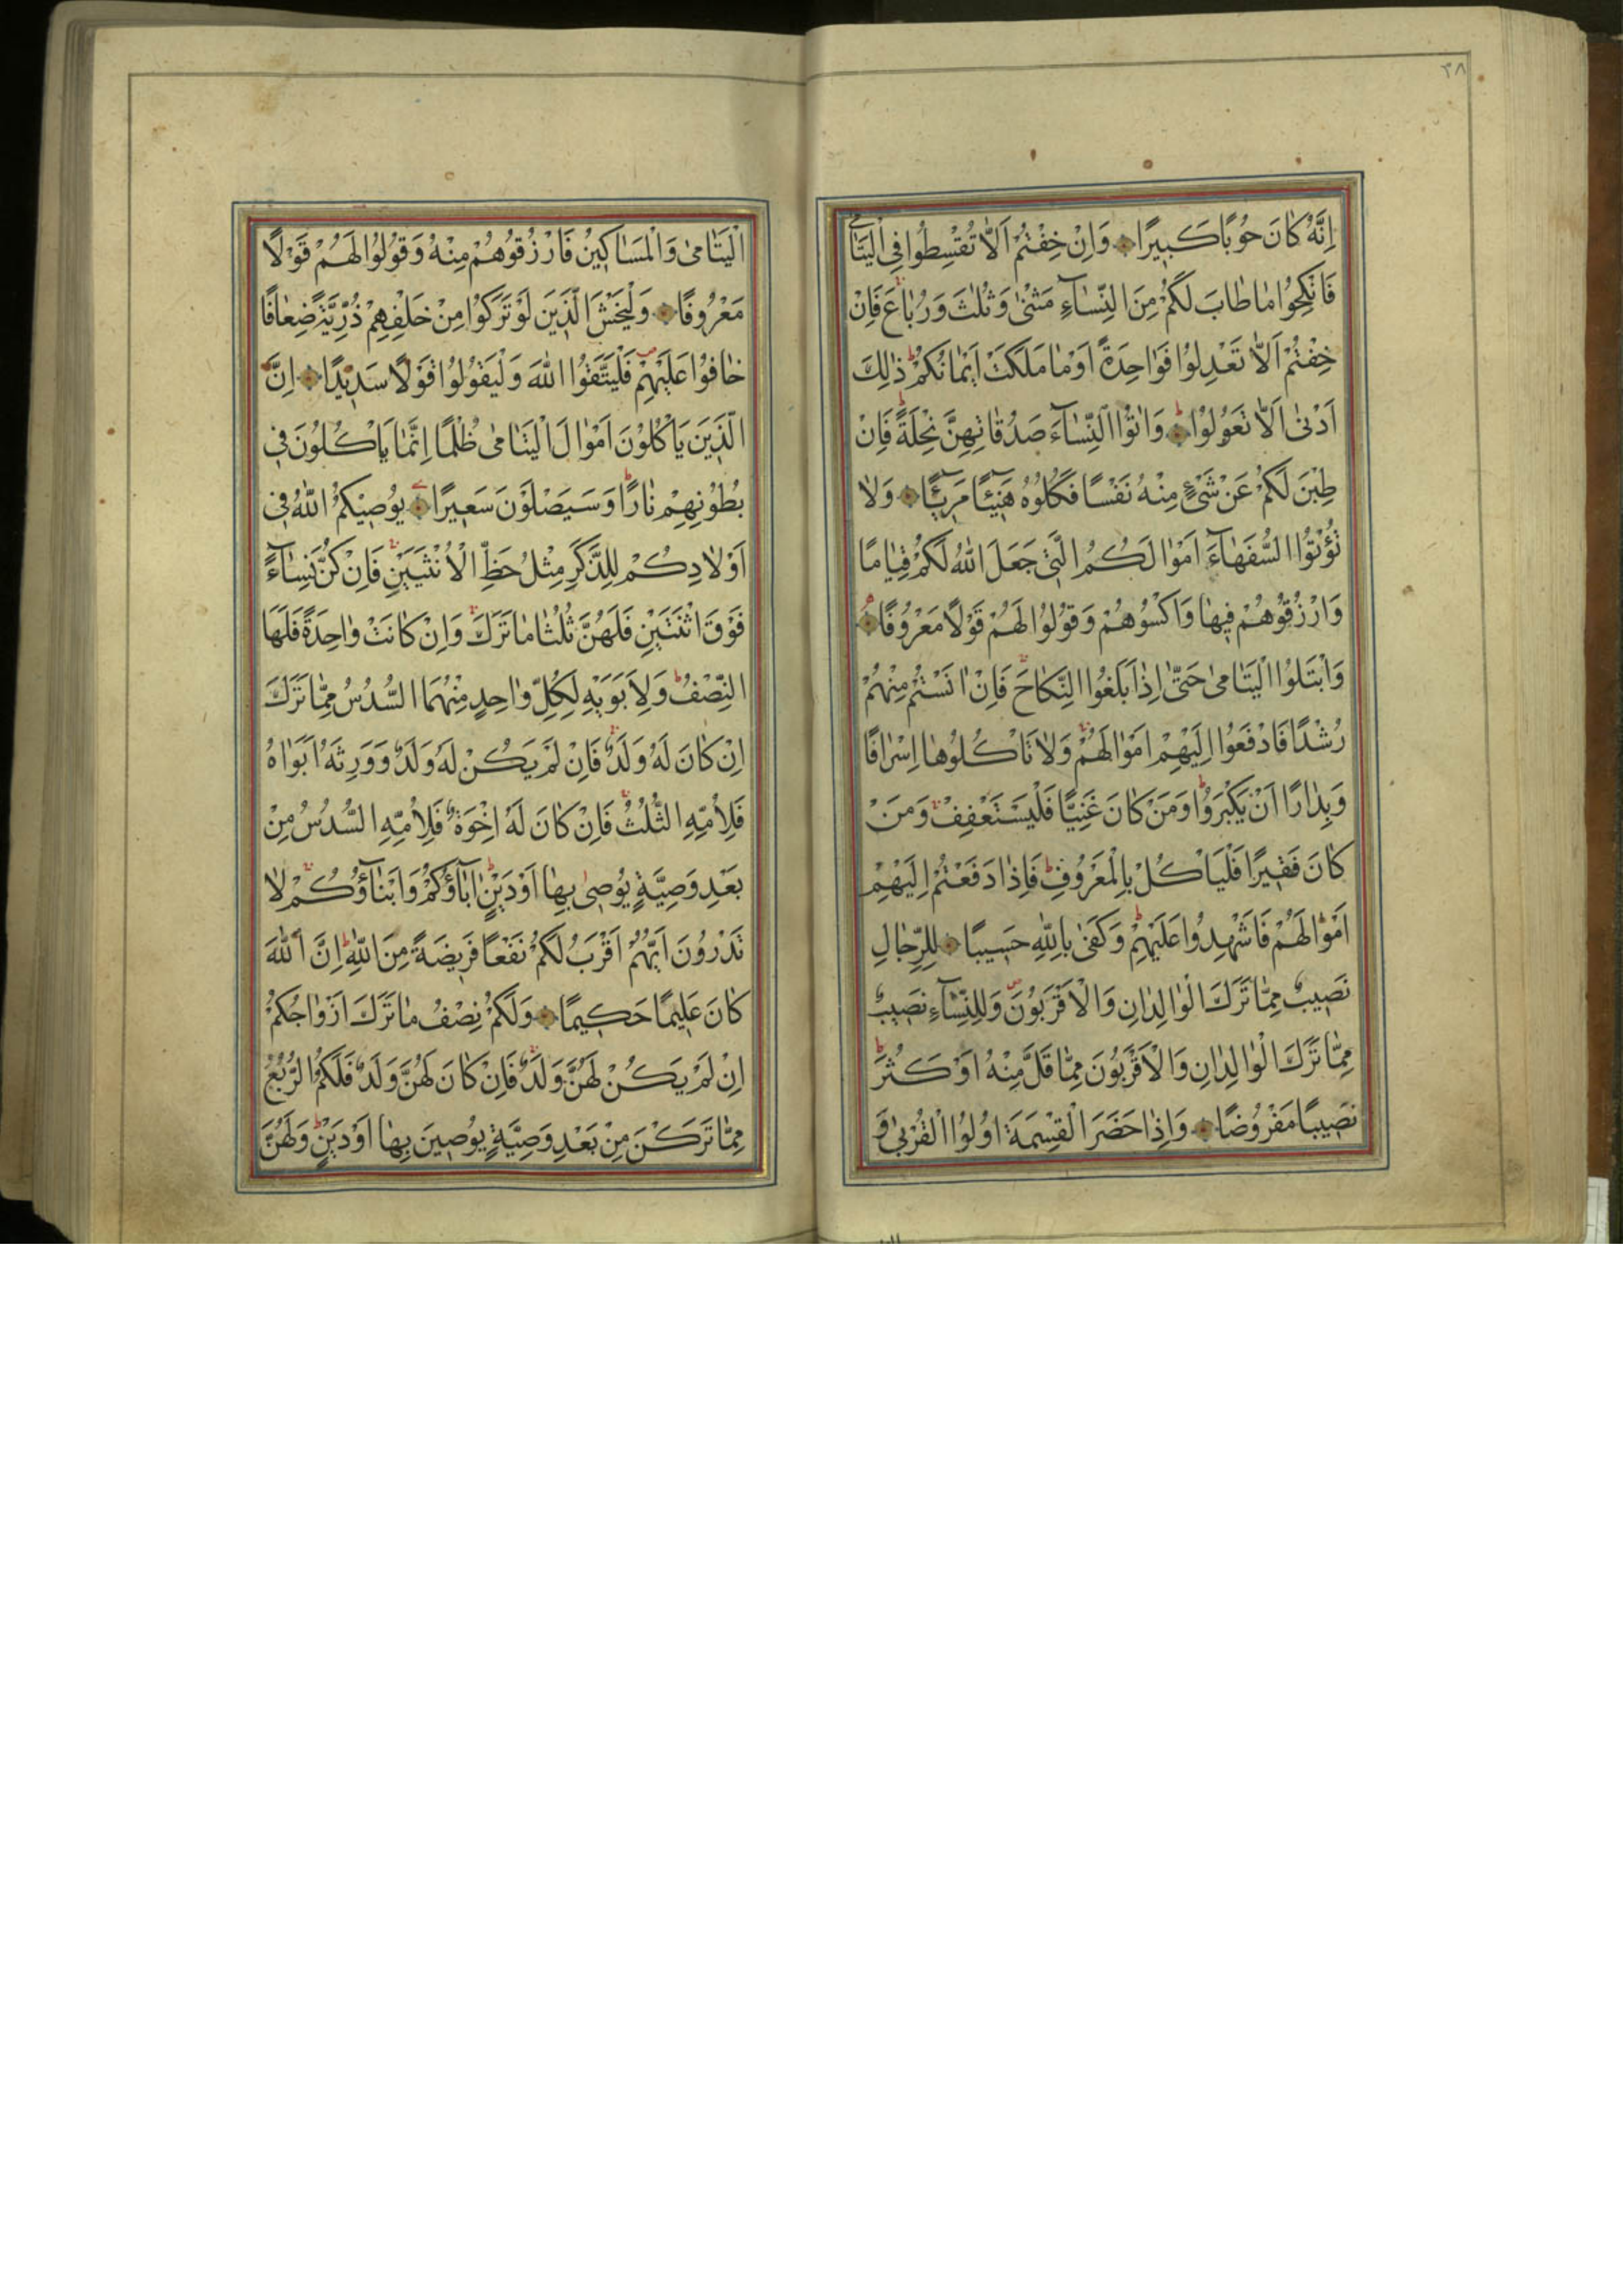 ٣٨
اِنَّهُ كَانَ حُوبًا كَبِيرًا وَاِنْ خِفْتُمْ اَلَّا تُقْسِطُوا فِي الْيَتَامٰى
فَانْكِحُوا مَا طَابَ لَكُمْ مِنَ النِّسَآءِ مَثْنٰى وَثُلٰثَ وَرُبَاعَ فَاِنْ
خِفْتُمْ اَلَّا تَعْدِلُوا فَوَاحِدَةً اَوْ مَا مَلَكَتْ اَيْمَانُكُمْ ذٰلِكَ
اَدْنٰى اَلَّا تَعُولُوا وَاٰتُوا النِّسَآءَ صَدُقَاتِهِنَّ نِحْلَةً فَاِنْ
طِبْنَ لَكُمْ عَنْ شَيْءٍ مِنْهُ نَفْسًا فَكُلُوهُ هَنِيٓئًا مَرِيٓئًا وَلَا
تُؤْتُوا السُّفَهَآءَ اَمْوَالَكُمُ الَّتِي جَعَلَ اللّٰهُ لَكُمْ قِيَامًا
وَارْزُقُوهُمْ فِيهَا وَاكْسُوهُمْ وَقُولُوا لَهُمْ قَوْلًا مَعْرُوفًا
وَابْتَلُوا الْيَتَامٰى حَتّٰى اِذَا بَلَغُوا النِّكَاحَ فَاِنْ اٰنَسْتُمْ مِنْهُمْ
رُشْدًا فَادْفَعُوا اِلَيْهِمْ اَمْوَالَهُمْ وَلَا تَاْكُلُوهَا اِسْرَافًا
وَبِدَارًا اَنْ يَكْبَرُوا وَمَنْ كَانَ غَنِيًّا فَلْيَسْتَعْفِفْ وَمَنْ
كَانَ فَقِيرًا فَلْيَاْكُلْ بِالْمَعْرُوفِ فَاِذَا دَفَعْتُمْ اِلَيْهِمْ
اَمْوَالَهُمْ فَاَشْهِدُوا عَلَيْهِمْ وَكَفٰى بِاللّٰهِ حَسِيبًا لِلرِّجَالِ
نَصِيبٌ مِمَّا تَرَكَ الْوَالِدَانِ وَالْاَقْرَبُونَ وَلِلنِّسَآءِ نَصِيبٌ
مِمَّا تَرَكَ الْوَالِدَانِ وَالْاَقْرَبُونَ مِمَّا قَلَّ مِنْهُ اَوْ كَثُرَ
نَصِيبًا مَفْرُوضًا وَاِذَا حَضَرَ الْقِسْمَةَ اُولُوا الْقُرْبٰى وَ
الْيَتَامٰى وَالْمَسَاكِينُ فَارْزُقُوهُمْ مِنْهُ وَقُولُوا لَهُمْ قَوْلًا
مَعْرُوفًا وَلْيَخْشَ الَّذِينَ لَوْ تَرَكُوا مِنْ خَلْفِهِمْ ذُرِّيَّةً ضِعَافًا
خَافُوا عَلَيْهِمْ فَلْيَتَّقُوا اللّٰهَ وَلْيَقُولُوا قَوْلًا سَدِيدًا اِنَّ
الَّذِينَ يَاْكُلُونَ اَمْوَالَ الْيَتَامٰى ظُلْمًا اِنَّمَا يَاْكُلُونَ فِي
بُطُونِهِمْ نَارًا وَسَيَصْلَوْنَ سَعِيرًا يُوصِيكُمُ اللّٰهُ فِي
اَوْلَادِكُمْ لِلذَّكَرِ مِثْلُ حَظِّ الْاُنْثَيَيْنِ فَاِنْ كُنَّ نِسَآءً
فَوْقَ اثْنَتَيْنِ فَلَهُنَّ ثُلُثَا مَا تَرَكَ وَاِنْ كَانَتْ وَاحِدَةً فَلَهَا
النِّصْفُ وَلِاَبَوَيْهِ لِكُلِّ وَاحِدٍ مِنْهُمَا السُّدُسُ مِمَّا تَرَكَ
اِنْ كَانَ لَهُ وَلَدٌ فَاِنْ لَمْ يَكُنْ لَهُ وَلَدٌ وَوَرِثَهُ اَبَوَاهُ
فَلِاُمِّهِ الثُّلُثُ فَاِنْ كَانَ لَهُ اِخْوَةٌ فَلِاُمِّهِ السُّدُسُ مِنْ
بَعْدِ وَصِيَّةٍ يُوصِي بِهَا اَوْ دَيْنٍ اٰبَآؤُكُمْ وَاَبْنَآؤُكُمْ لَا
تَدْرُونَ اَيُّهُمْ اَقْرَبُ لَكُمْ نَفْعًا فَرِيضَةً مِنَ اللّٰهِ اِنَّ اللّٰهَ
كَانَ عَلِيمًا حَكِيمًا وَلَكُمْ نِصْفُ مَا تَرَكَ اَزْوَاجُكُمْ
اِنْ لَمْ يَكُنْ لَهُنَّ وَلَدٌ فَاِنْ كَانَ لَهُنَّ وَلَدٌ فَلَكُمُ الرُّبُعُ
مِمَّا تَرَكْنَ مِنْ بَعْدِ وَصِيَّةٍ يُوصِينَ بِهَا اَوْ دَيْنٍ وَلَهُنَّ